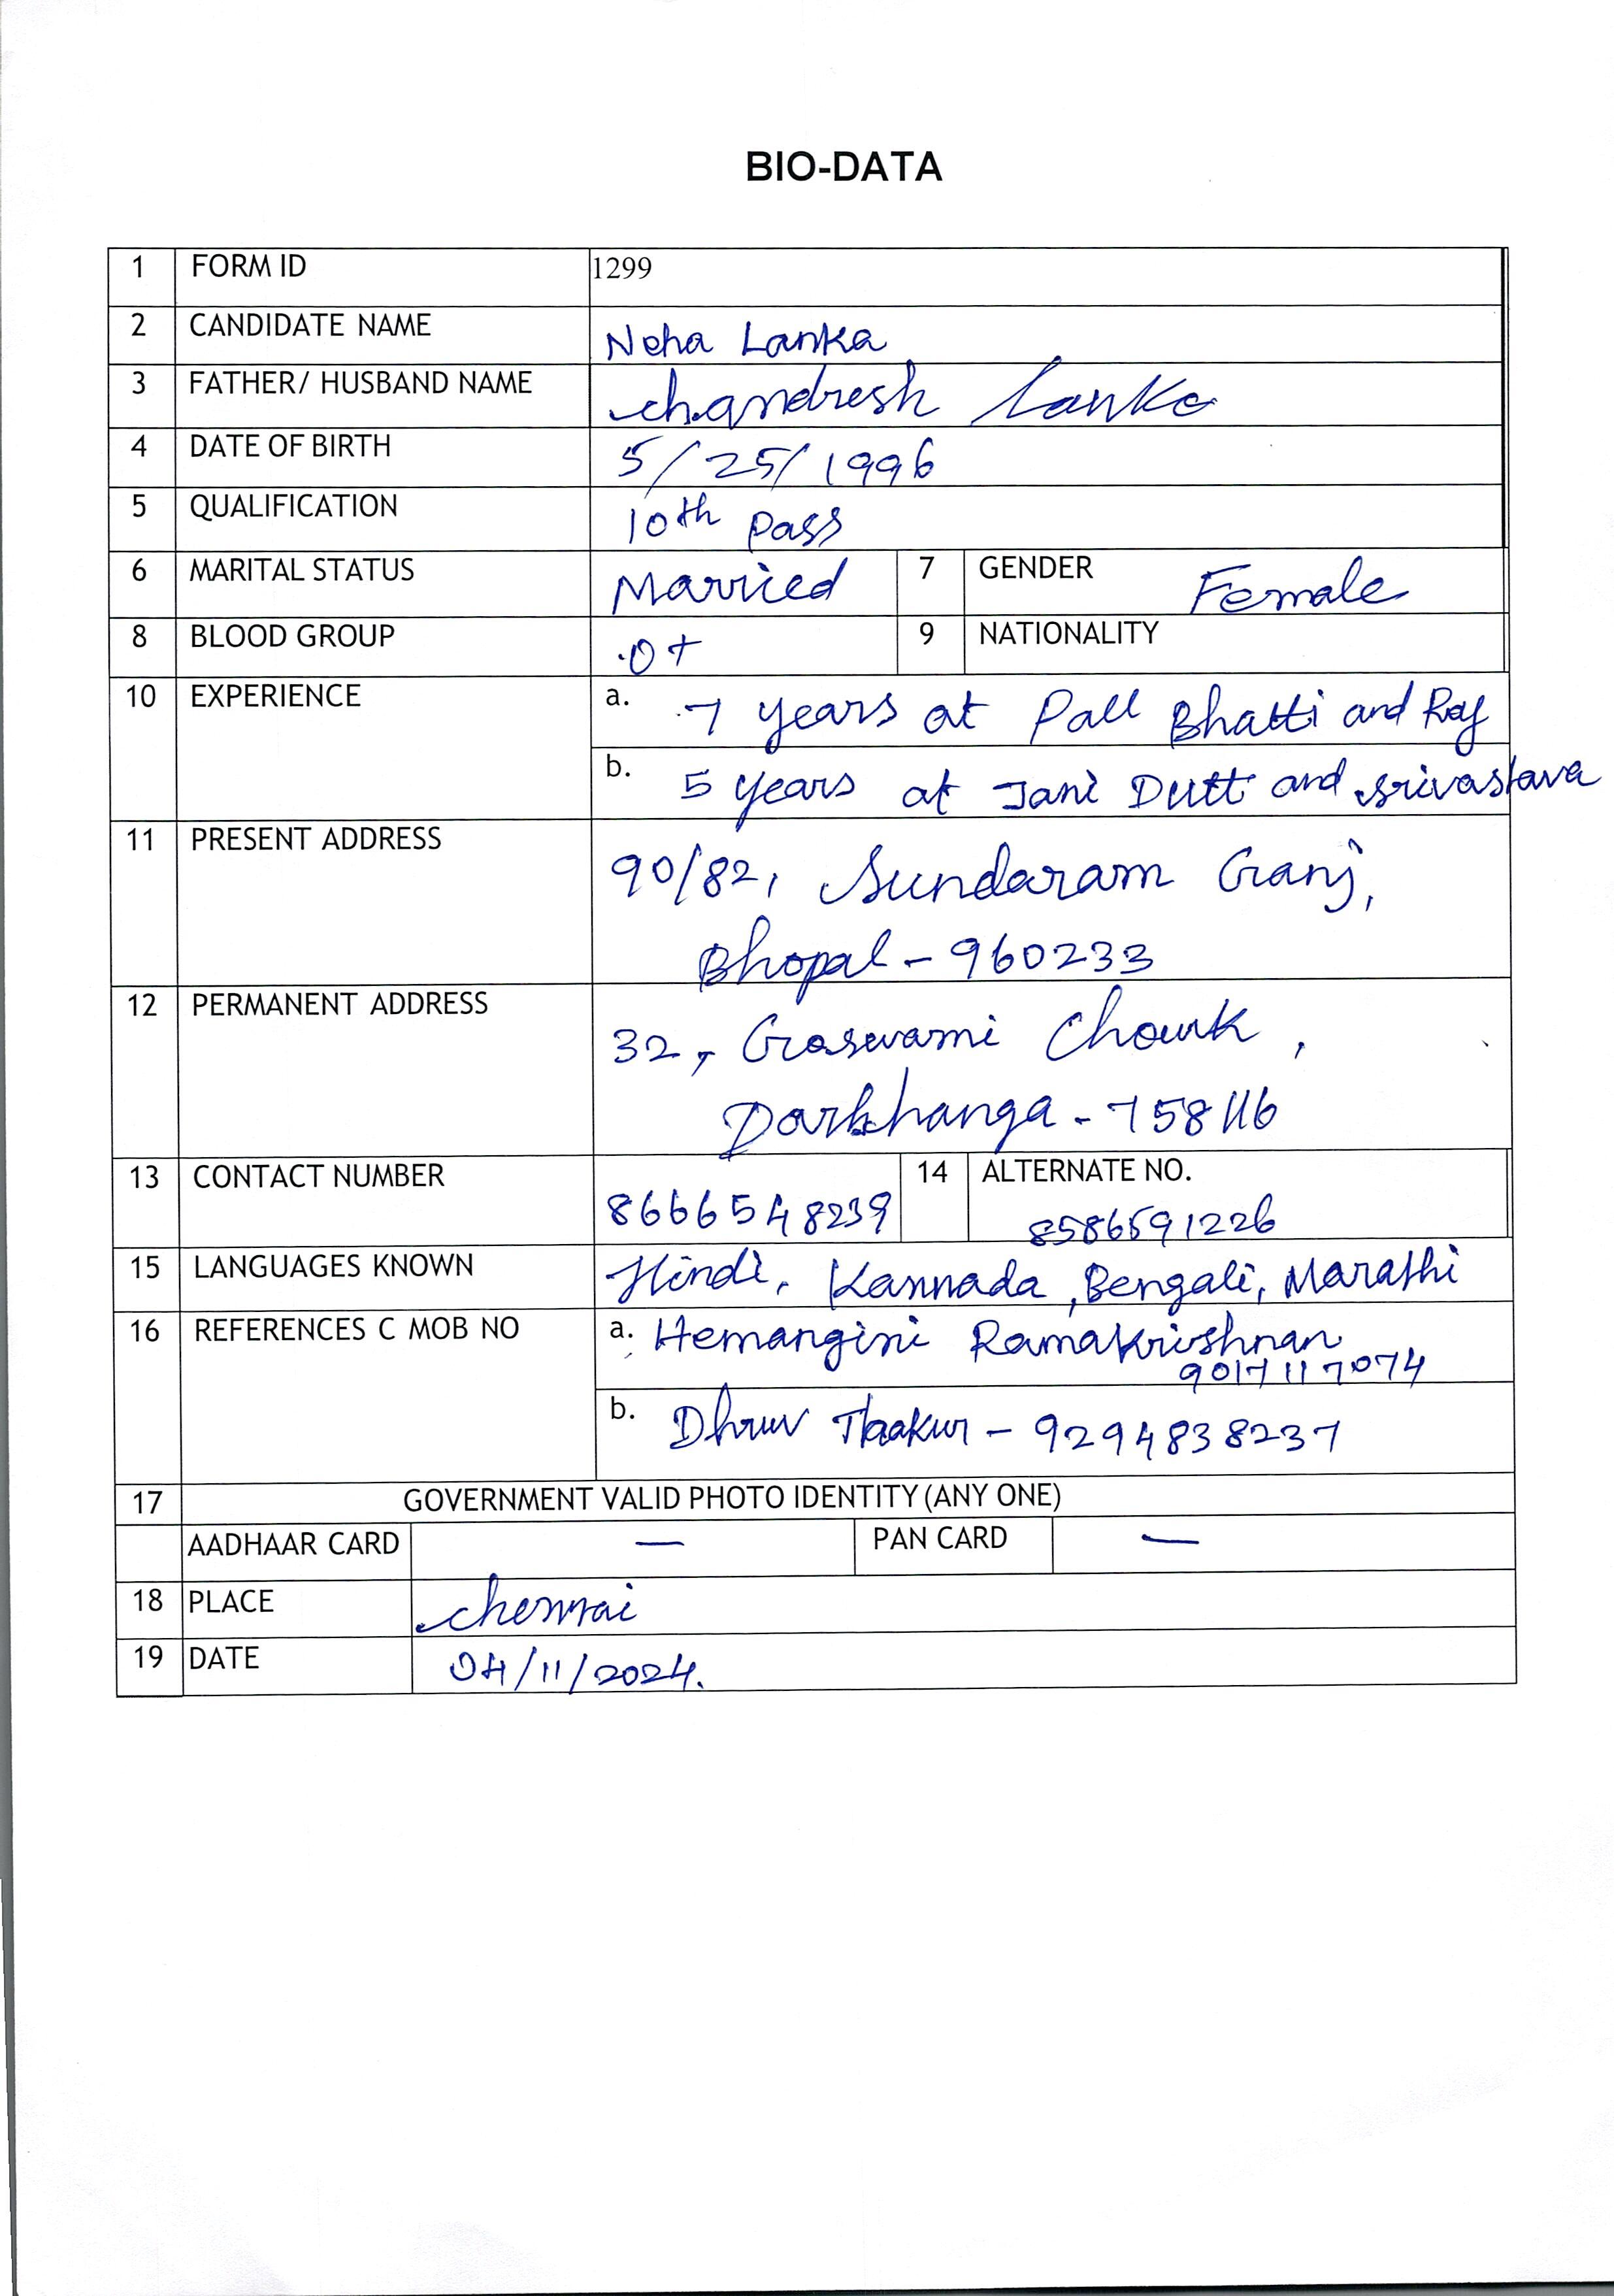 BIO-DATA
1 FORM ID 1299
2 CANDIDATE NAME Neha Lanka
3 FATHER/ HUSBAND NAME Chandresh Lanka
4 DATE OF BIRTH 5/25/1996
5 QUALIFICATION 10th pass
6 MARITAL STATUS Married 7 GENDER Female
8 BLOOD GROUP O+ 9 NATIONALITY
10 EXPERIENCE a. 7 years at Pall Bhatti and Ray
b. 5 years at Jani Dutt and Srivastava
11 PRESENT ADDRESS 90/82, Sundaram Ganj,
Bhopal - 960233
12 PERMANENT ADDRESS 32, Goswami Chowk,
Darbhanga - 758116
13 CONTACT NUMBER 8666548239 14 ALTERNATE NO.
8586591226
15 LANGUAGES KNOWN Hindi, Kannada, Bengali, Marathi
16 REFERENCES C MOB NO a. Hemangini Ramakrishnan
9017117074
b. Dhruv Thakur - 9294838237
17 GOVERNMENT VALID PHOTO IDENTITY (ANY ONE)
AADHAAR CARD — PAN CARD —
18 PLACE Chennai
19 DATE 04/11/2024.